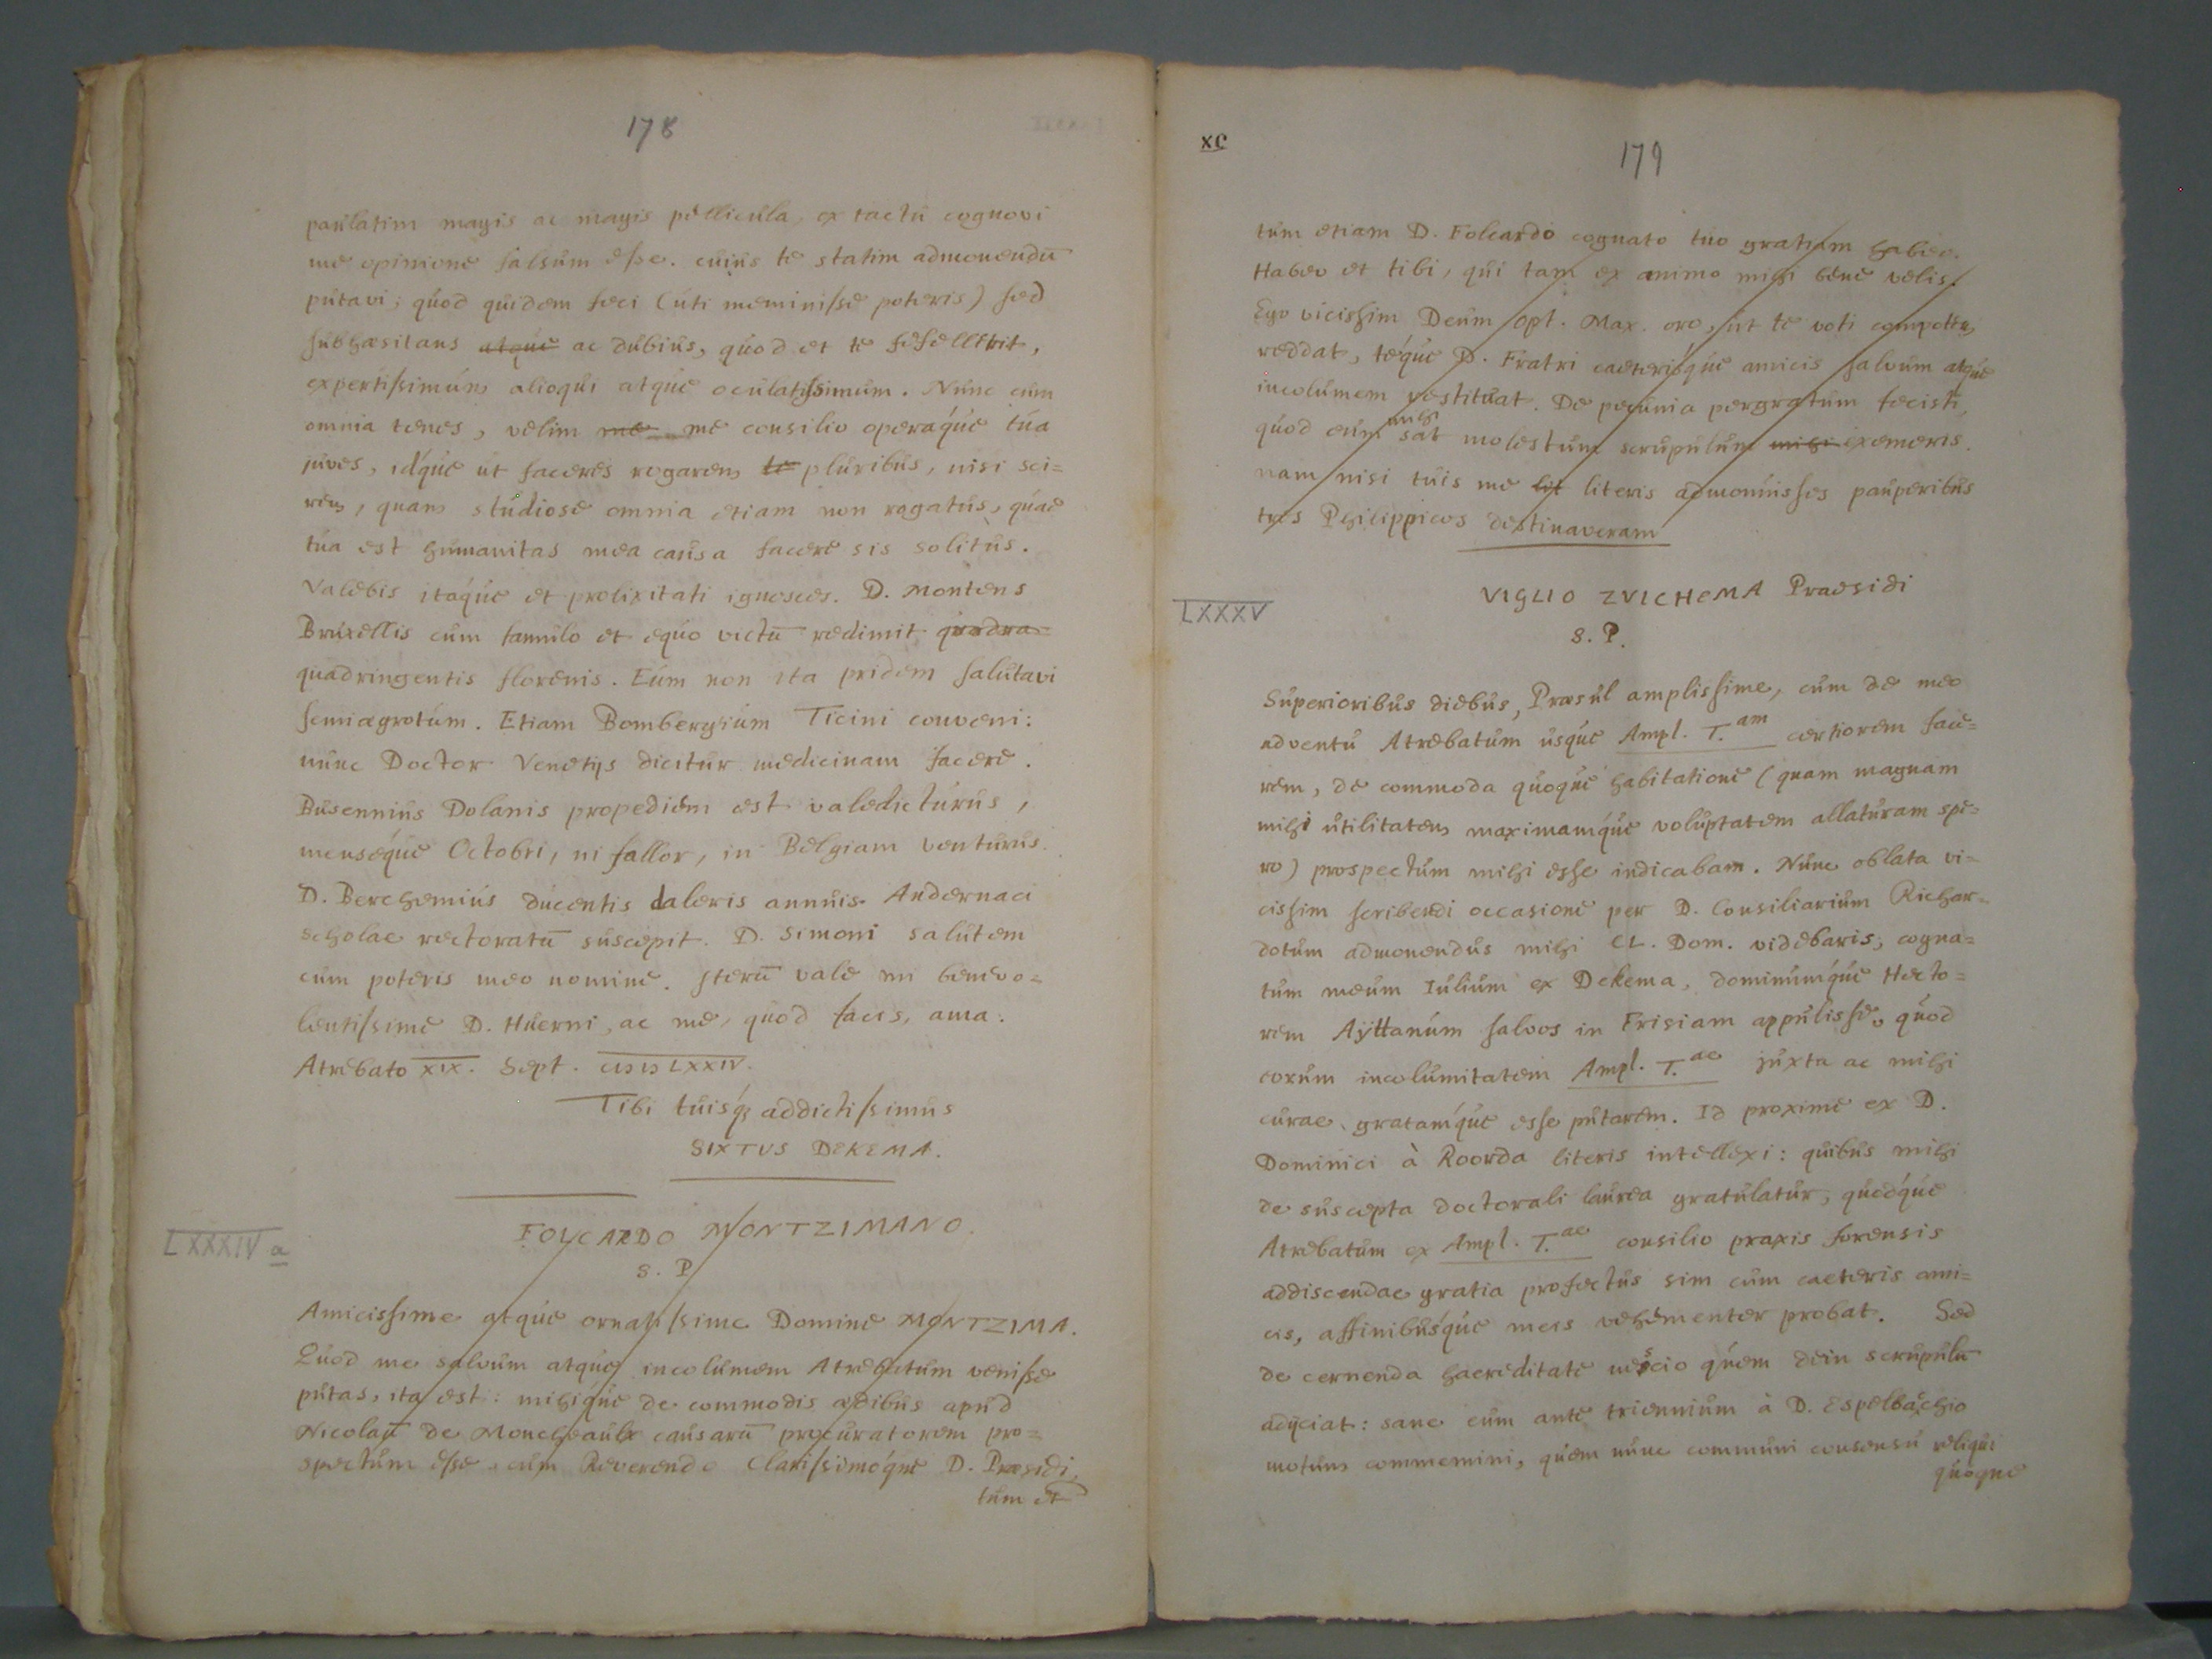 178
paulatim magis ac magis pellicula ex tactu cognovi
me opinione falsum esse. cuius te statim admonendū
putavi; quod quidem feci (uti meminisse poteris) sed
subhæsitans atque ac dubius, quod et te fefellerit,
expertissimum alioqui atque oculatissimum. Nunc cum
omnia tenes, velim me me consilio operaque tua
juves, idque ut faceres rogarem te pluribus, nisi sci=
rem, quam studiose omnia etiam non rogatus, quae
tua est humanitas mea causa facere sis solitus.
Valebis itaque et prolixitati ignosces. D. Montens
Bruxellis cum famulo et equo victū redimit quadra=
quadringentis florenis. Eum non ita pridem salutavi
semiægrotum. Etiam Bombergium Ticini conveni:
nunc Doctor Venetijs dicitur medicinam facere.
Busennius Dolanis propediem est valedicturus,
menseque Octobri, ni fallor, in Belgiam venturus.
D. Berchemius ducentis daleris annuis Andernaci
scholae rectoratū suscepit. D. Simoni salutem
cum poteris meo nomine. Iterū vale mi benevo=
lentissime D. Huerni, ac me, quod facis, ama.
Atrebato XIX. Sept. CIƆ IƆ LXXIV.
Tibi tuisq; addictissimus
SIXTVS DEKEMA.
LXXXIV a
FOLCARDO MONTZIMANO.
S. P.
Amicissime atque ornatissime Domine MONTZIMA.
Quod me salvum atque incolumem Atrebatum venisse
putas, ita est: mihique de commodis ædibus apud
Nicolaū de Moncheaulx causarū procuratorem pro=
spectum esse, cum Reverendo Clarissimoque D. Præsidi,
tum et
XC
179
tum etiam D. Folcardo cognato tuo gratiam habeo.
Habeo et tibi, qui tam ex animo mihi bene velis.
Ego vicissim Deum Opt. Max. oro, ut te voti compotem
reddat, teque D. Fratri caeterisque amicis salvum atque
incolumem restituat. De pecunia pergratum fecisti,
mihi
quod eum sat molestum scrupulum mihi exemeris.
nam nisi tuis me lit literis admonuisses pauperibus
tres Philippicos destinaveram
LXXXV
VIGLIO ZVICHEMA Praesidi
S. P.
Superioribus diebus, Præsul amplissime, cum de meo
adventu Atrebatum usque Ampl. T.am certiorem face=
rem, de commoda quoque habitatione (quam magnam
mihi utilitatem maximamque voluptatem allaturam spe=
ro) prospectum mihi esse indicabam. Nunc oblata vi=
cissim scribendi occasione per D. Consiliarium Richar=
dotum admonendus mihi CL. Dom. videbaris; cogna=
tum meum Iulium ex Dekema, dominumque Hecto=
rem Aÿttanum salvos in Frisiam appulisse. quod
eorum incolumitatem Ampl. T.ae juxta ac mihi
curae, gratamque esse putarem. Id proxime ex D.
Dominici à Roorda literis intellexi: quibus mihi
de suscepta doctorali laurea gratulatur, quodque
Atrebatum ex Ampl. T.ae consilio praxis forensis
addiscendae gratia profectus sim cum caeteris ami=
cis, affinibusque meis vehementer probat. Sed
de cernenda haereditate nescio quem dein scrupulū
adijciat: sane eum ante triennium à D. Espelbachio
motum commemini, quem nunc communi consensu reliqui
quoque